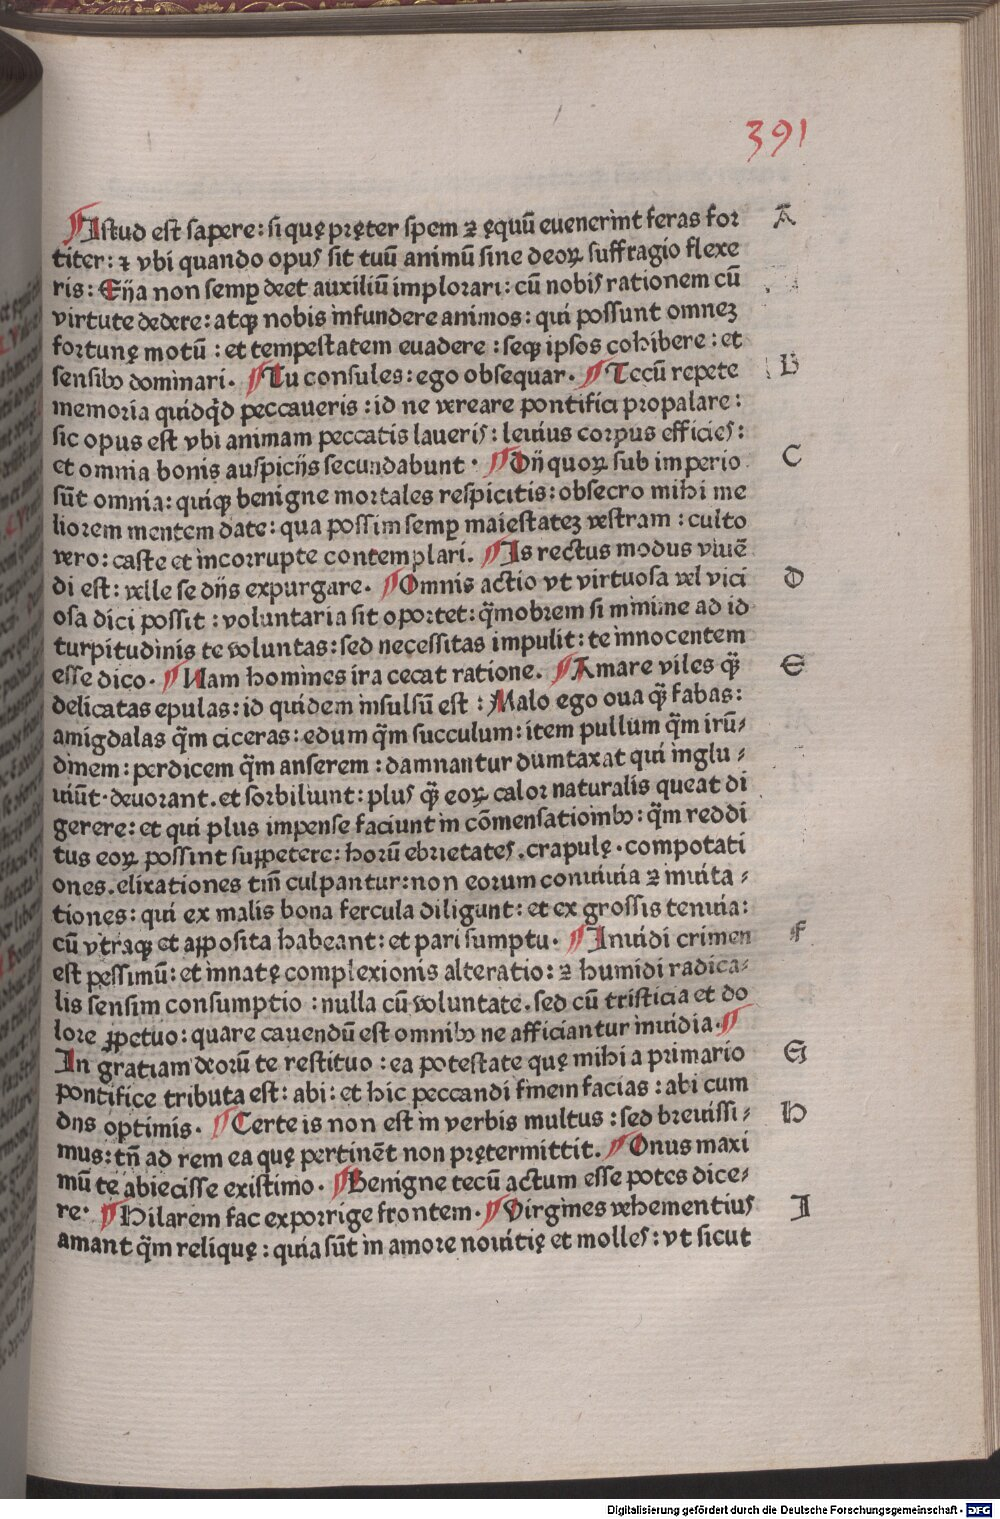 391
¶Istud est sapere: si quę pręter spem ⁊ ęquū euenerint feras for A
titer: ⁊ vbi quando opus sit tuū animū sine deoꝝ suffragio flexe
ris: Eija non semꝑ deet auxiliū implorari: cū nobis rationem cū
virtute dedere: atqꝫ nobis infundere animos: qui possunt omneꝫ
fortunę motū: et tempestatem euadere: seqꝫ ipsos cohibere: et
sensibꝰ dominari. ¶Tu consules: ego obsequar. ¶Tecū repete B
memoria quidq̄d peccaueris: id ne vereare pontifici propalare:
sic opus est vbi animam peccatis laueris: leuius corpus efficies:
et omnia bonis auspicijs secundabunt. ¶Dij quoꝝ sub imperio C
sūt omnia: quiqꝫ benigne mortales respicitis: obsecro mihi me
liorem mentem date: qua possim semꝑ maiestateꝫ vestram: culto
vero: caste et incorrupte contemplari. ¶Is rectus modus viuē
di est: velle se dijs expurgare. ¶Omnis actio vt virtuosa vel vici D
osa dici possit: voluntaria sit oportet: q̄mobrem si minime ad id
turpitudinis te voluntas: sed necessitas impulit: te innocentem
esse dico. ¶Nam homines ira cecat ratione. ¶Amare viles q̄ꝫ E
delicatas epulas: id quidem insulsū est: Malo ego oua q̄ꝫ fabas:
amigdalas q̄m ciceras: edum q̄m succulum: item pullum q̄m irū⸗
dinem: perdicem q̄m anserem: damnantur dumtaxat qui inglu⸗
uiūt. deuorant. et sorbiliunt: plus q̄ꝫ eoꝝ calor naturalis queat di
gerere: et qui plus impense faciunt in cōmensatioinbꝰ: q̄m reddi
tus eoꝝ possint suꝑpetere: horū ebrietates. crapulę. compotati
ones. elixationes tm̄ culpantur: non eorum conuiuia ⁊ inuita⸗
tiones: qui ex malis bona fercula diligunt: et ex grossis tenuia:
cū vtraqꝫ et aꝓposita habeant: et pari sumptu. ¶Inuidi crimen F
est pessimū: et innatę complexionis alteratio: ⁊ humidi radica⸗
lis sensim consumptio: nulla cū voluntate. sed cū tristicia et do
lore ꝑpetuo: quare cauendū est omnibꝰ ne afficiantur inuidia. ¶
In gratiam deorū te restituo: ea potestate quę mihi a primario G
pontifice tributa est: abi: et hic peccandi finem facias: abi cum
dijs optimis. ¶Certe is non est in verbis multus: sed breuissi⸗ H
mus: tn̄ ad rem ea quę pertinēt non prętermittit. ¶Onus maxi
mū te abiecisse existimo. ¶Benigne tecū actum esse potes dice⸗
re. ¶Hilarem fac exporrige frontem. ¶Virgines vehementius I
amant q̄m reliquę: quia sūt in amore nouitię et molles: vt sicut
Digitalisierung gefördert durch die Deutsche Forschungsgemeinschaft - DFG